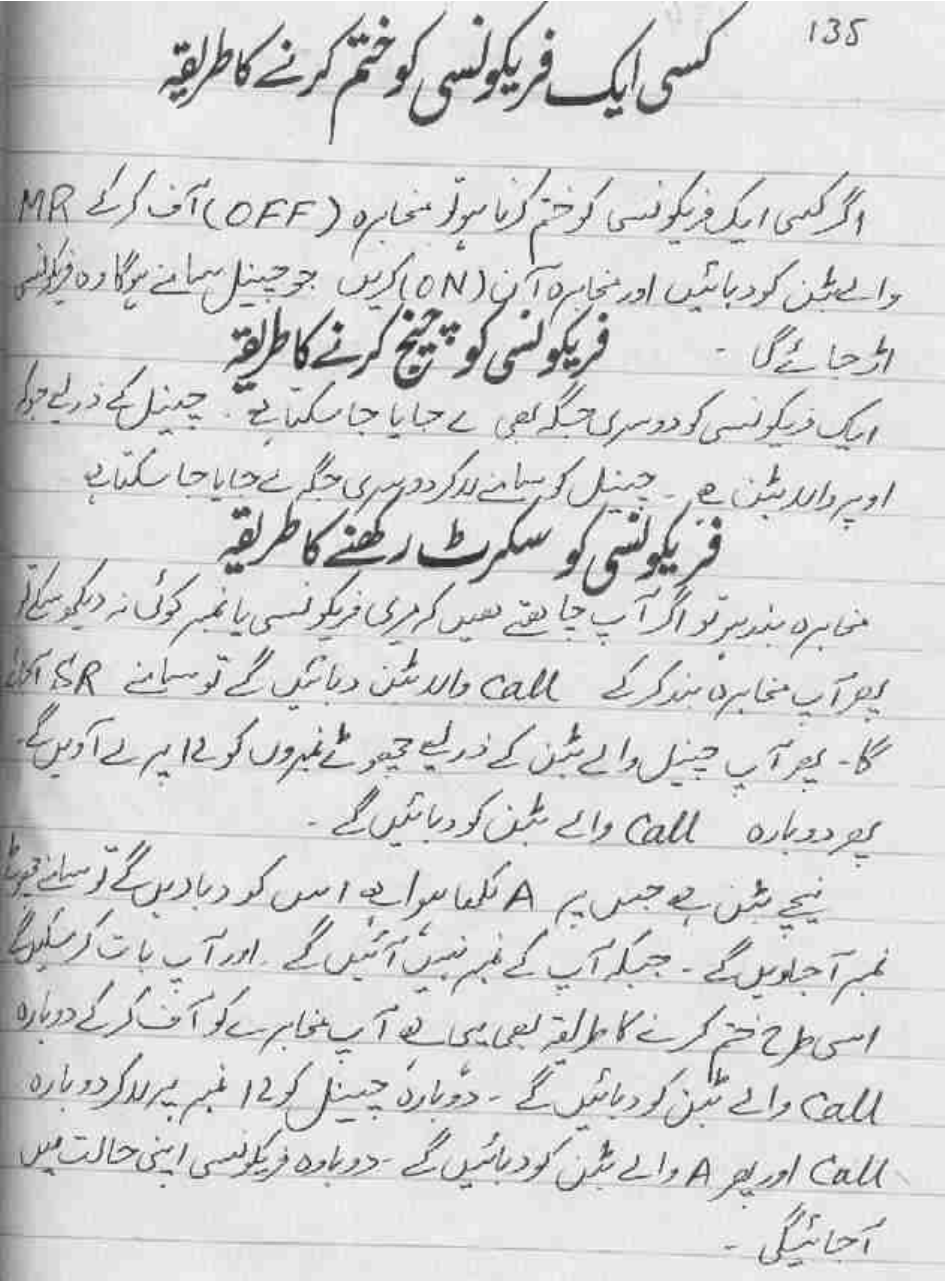 135
کسی ایک فریکونسی کو ختم کرنے کا طریقہ
اگر کسی ایک فریکونسی کو ختم کرنا ہو تو مخابرہ (OFF) آف کر کے MR
والے بٹن کو دبائیں اور مخابرہ آن (ON) کریں جو چینل سامنے ہوگا وہ فریکونسی
اڑ جائے گا -
فریکونسی کو چینج کرنے کا طریقہ
ایک فریکونسی کو دوسری جگہ بھی لے جایا جا سکتا ہے - چینل کے ذریعے جو کہ
اوپر والا بٹن ہے - چینل کو سامنے لا کر دوسری جگہ لے جایا جا سکتا ہے
فریکونسی کو سکرٹ رکھنے کا طریقہ
مخابرہ بند ہو تو اگر آپ چاہتے ہیں کہ مری فریکونسی یا نمبر کوئی نہ دیکھ سکے تو
پھر آپ مخابرہ بند کر کے call والا بٹن دبائیں گے تو سامنے SR آجائے
گا - پھر آپ چینل والے بٹن کے ذریعے چھوٹے نمبروں کو 12 پر لے آویں گے -
پھر دوبارہ call والے بٹن کو دبائیں گے -
نیچے بٹن ہے جس پر A لکھا ہوا ہے اس کو دبا دیں گے تو سامنے چھوٹے
نمبر آ جاویں گے - جبکہ آپ کے نمبر نہیں آئیں گے - اور آپ بات کر سکیں گے
اسی طرح ختم کرنے کا طریقہ بھی یہی ہے آپ مخابرے کو آف کر کے دوبارہ
call والے بٹن کو دبائیں گے - دوبارہ چینل کو 12 نمبر پر لا کر دوبارہ
call اور پھر A والے بٹن کو دبائیں گے - دوبارہ فریکونسی اپنی حالت میں
آجائیگی -